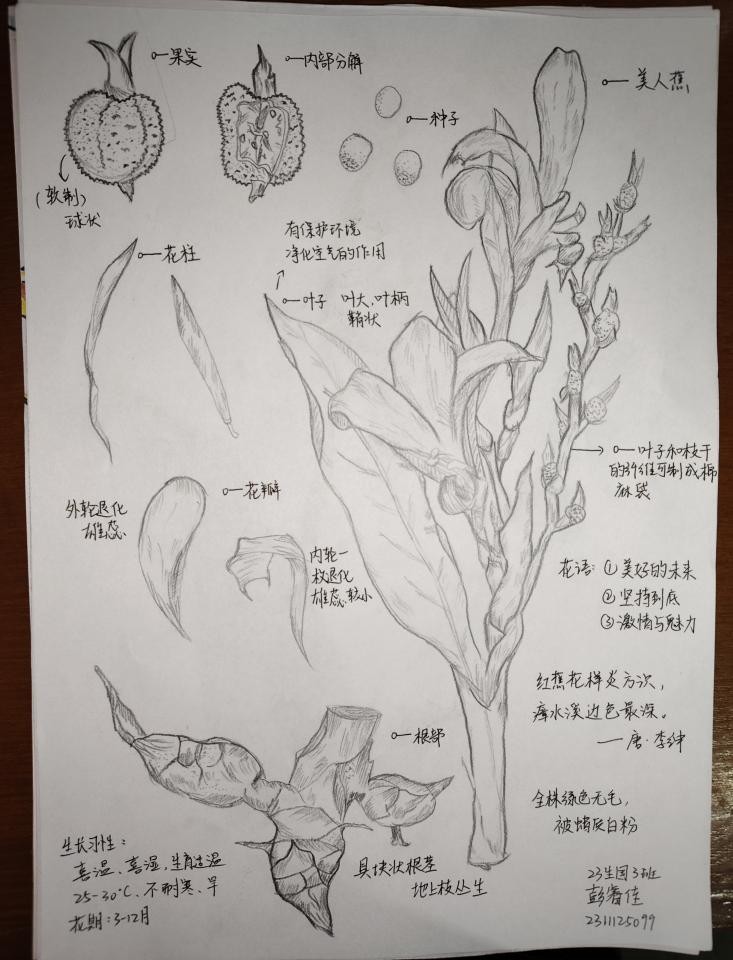 果实
内部分解
美人蕉
种子
(软刺)
球状
花柱
有保护环境
净化空气的作用
叶子 叶大,叶柄
鞘状
叶子和枝干
的纤维可制成棉
麻袋
外轮退化
雄蕊
花瓣
内轮一
枚退化
雄蕊较小
花语:①美好的未来
②坚持到底
③激情与魅力
红蕉花样炎方识,
瘴水溪边色最深。
——唐·李绅
根部
全株绿色无毛,
被蜡质白粉
生长习性:
喜温、喜湿,生育适温
25-30℃,不耐寒、旱
花期:3-12月
具块状根茎
地上枝丛生
23生园3班
彭睿佳
2311125099